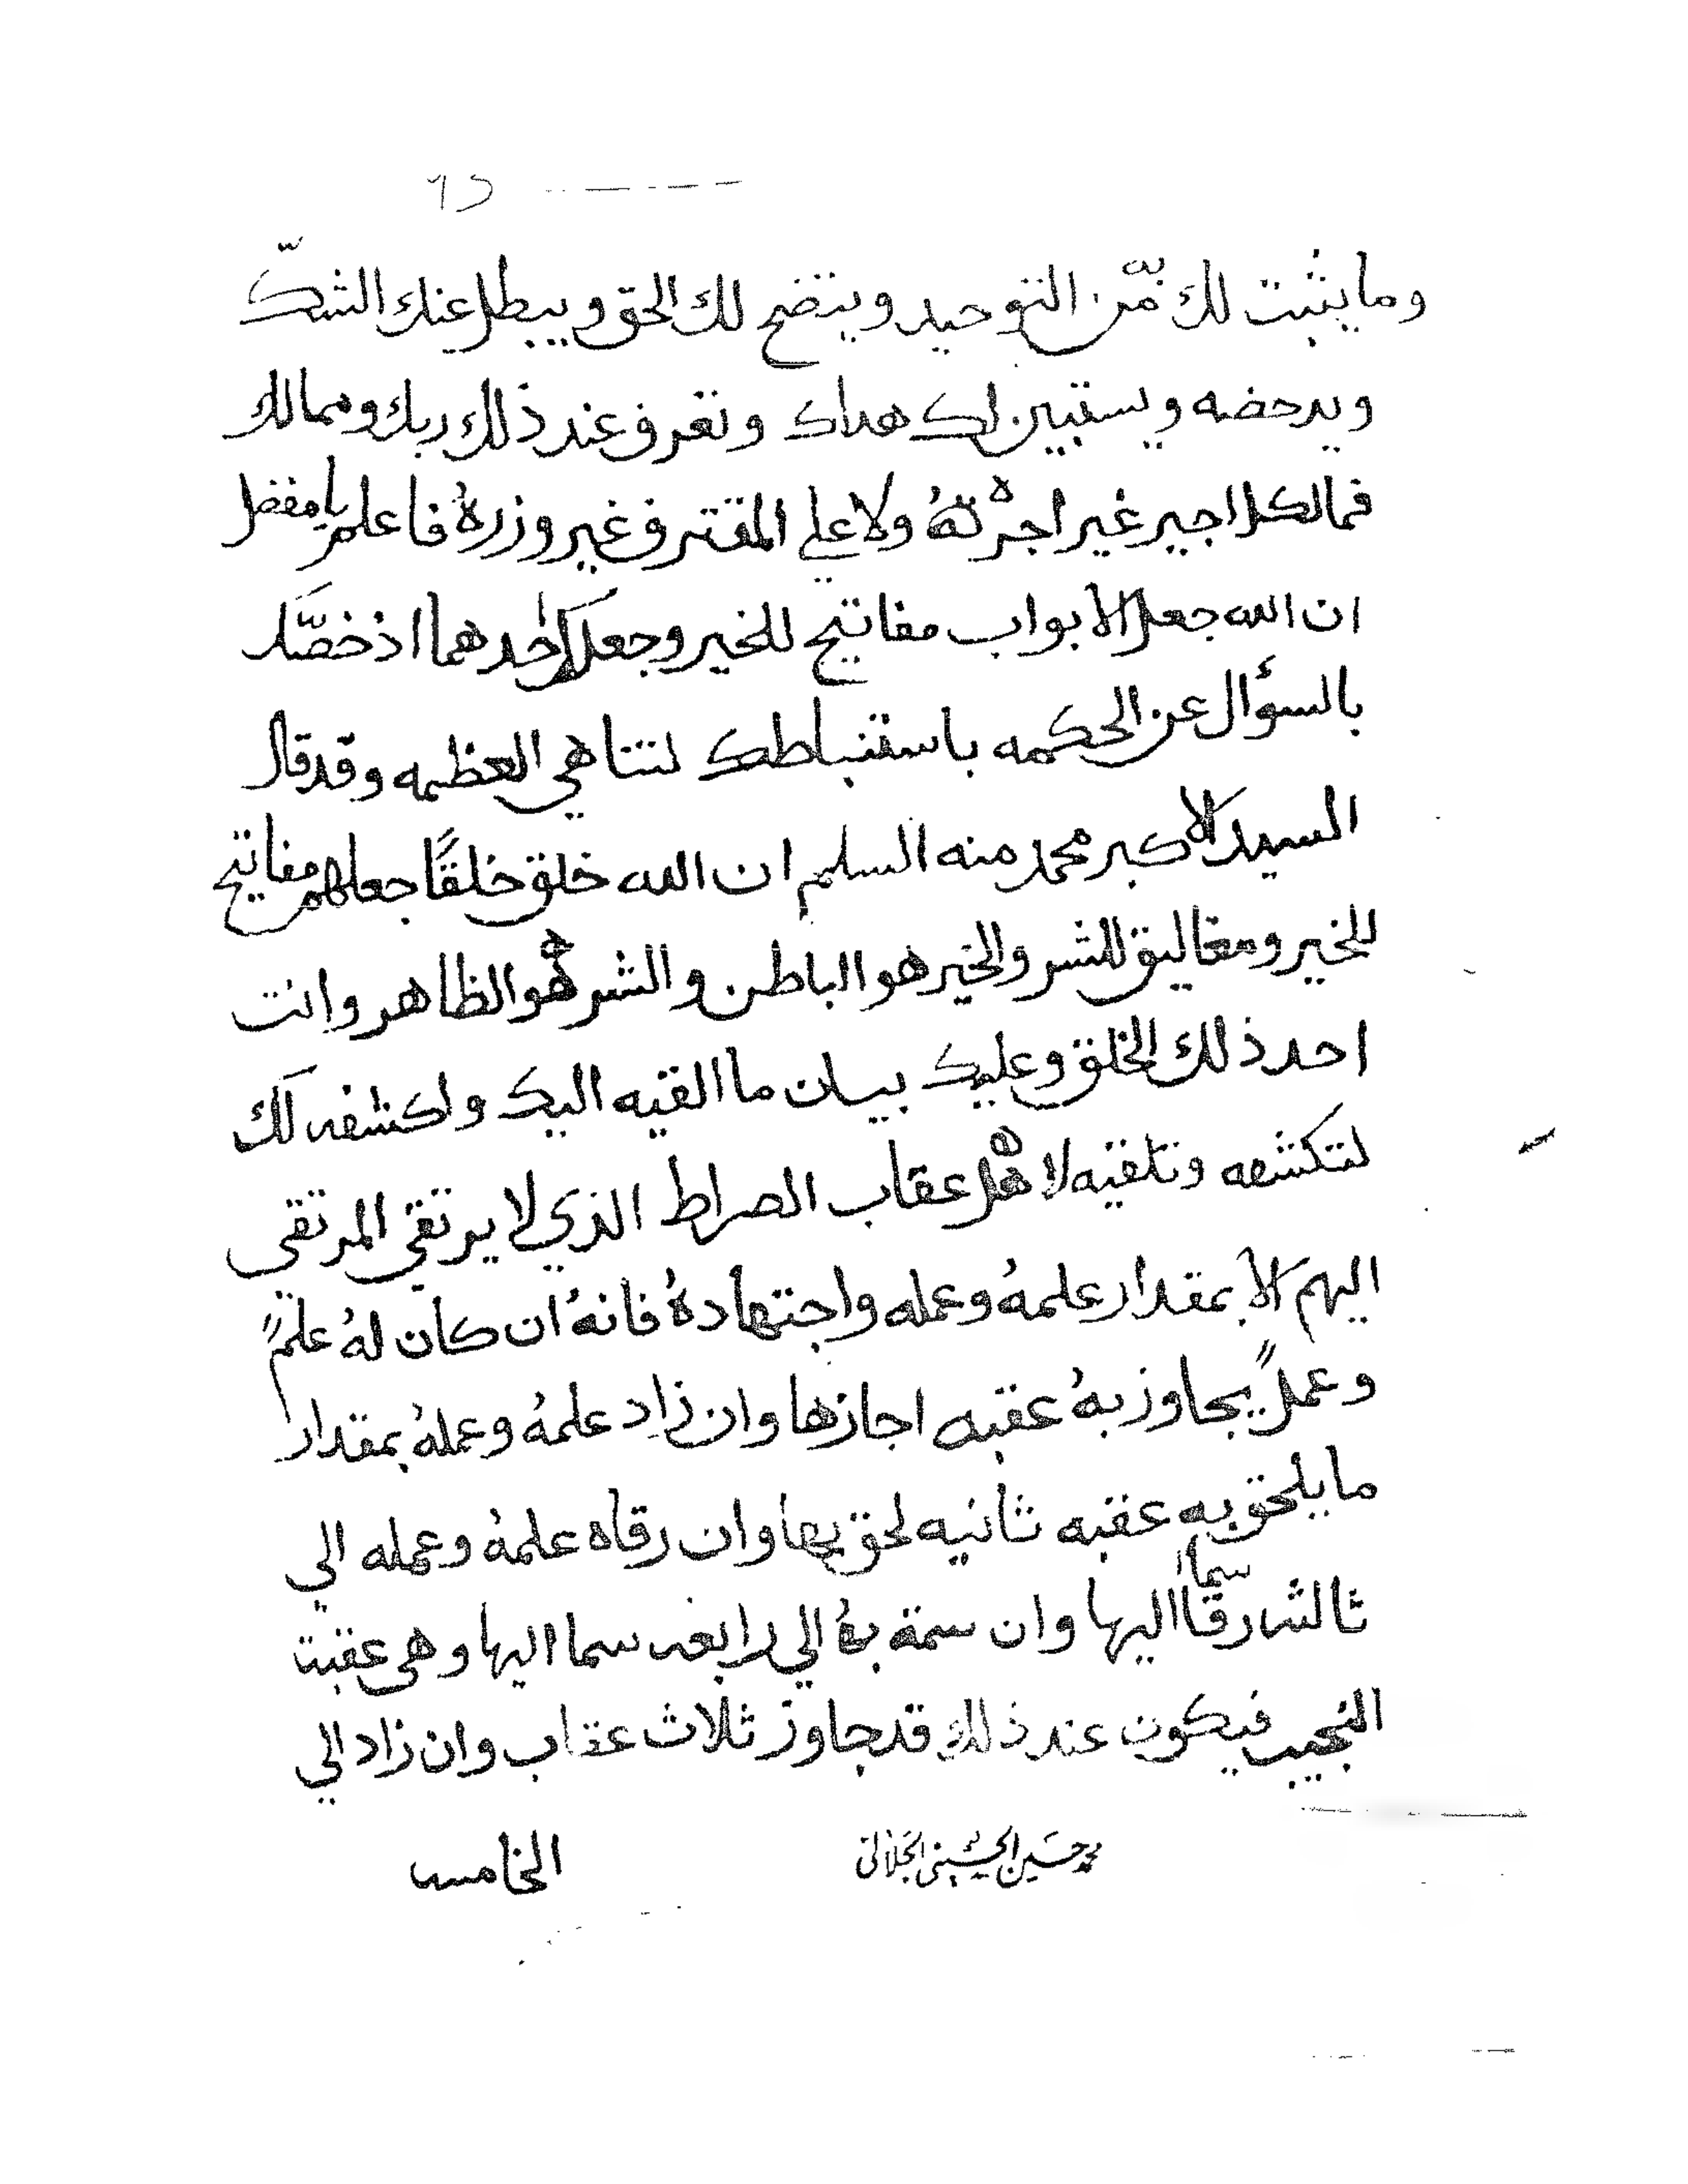 ٩٢
وما يثبت لك من التوحيد ويتضح لك الحق ويبطل عنك الشك
ويدحضه ويستبين لك هداك وتعرف عند ذلك ربك ومما لك
فما لكل اجير غير اجرته ولا علي المقترف غير وزرهُ فاعلم يا مفضل
ان الله جعل الابواب مفاتيح للخير وجعلك احدهما اذ خصّك
بالسؤال عن الحكمه باستنباطك لتناهي العظمه وقد قال
السيد الاكبر محمد منه السلم ان الله خلق خلقًا جعلهم مفاتيح
للخير ومغاليق للشر والخير هو الباطن والشر هو الظاهر وانت
احد ذلك الخلق وعليك بيان ما القيه اليك واكشفه لك
لتكشفه وتلقيه لاهل عقاب الصراط الذي لا يرتقي المرتقى
اليهم الا بمقدار علمهُ وعمله واجتهادهُ فانهُ ان كان لهُ علمً
وعملً يجاوز بهُ عقبه اجازها وان زاد علمهُ وعملهُ بمقدار
ما يلحق به عقبه ثانيه لحق بها وان رقاه علمهُ وعمله الي
ثالثه رقا سما اليها وان سمة بهُ الي رابعه سما اليها وهى عقبت
النجيب فيكون عند ذلك قد جاوز ثلاث عقاب وان زاد الي
محمد حسين الحسيني الجلالي
الخامسه